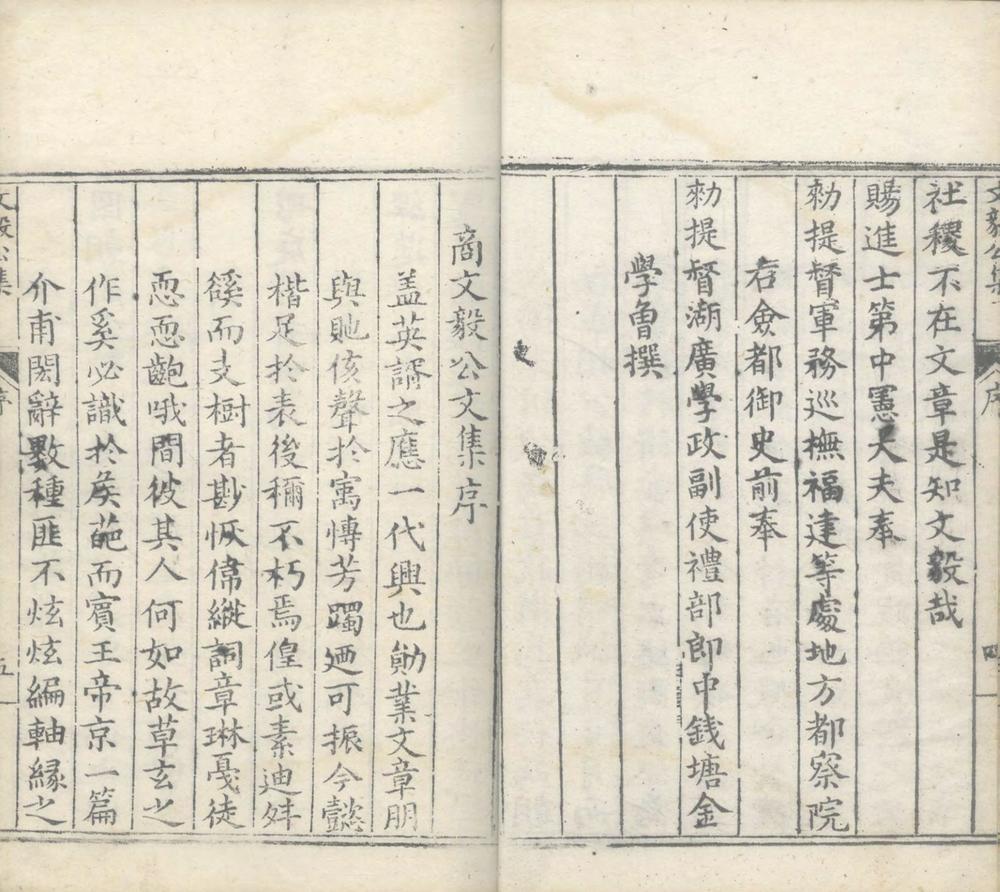 社稷不在文章是知文毅哉
賜進士第中憲大夫奉
勑提督軍務巡撫福建等處地方都察院
右僉都御史前奉
勑提督湖廣學政副使禮部郎中錢塘金
學曾撰
商文毅公文集序
盖英諝之應一代興也勛業文章朋
與貤侅聲於寓慱芳躅廼可振今懿
楷足於表後稱不朽焉偟或素迪舛
徯而支樹者尠恢偉縱詞章琳戞徒
恧恧齣哦間彼其人何如故草玄之
作奚必識於矦芭而賓王帝京一篇
介甫閎辭數種匪不炫炫編軸緣之
文毅公集
序
五
四